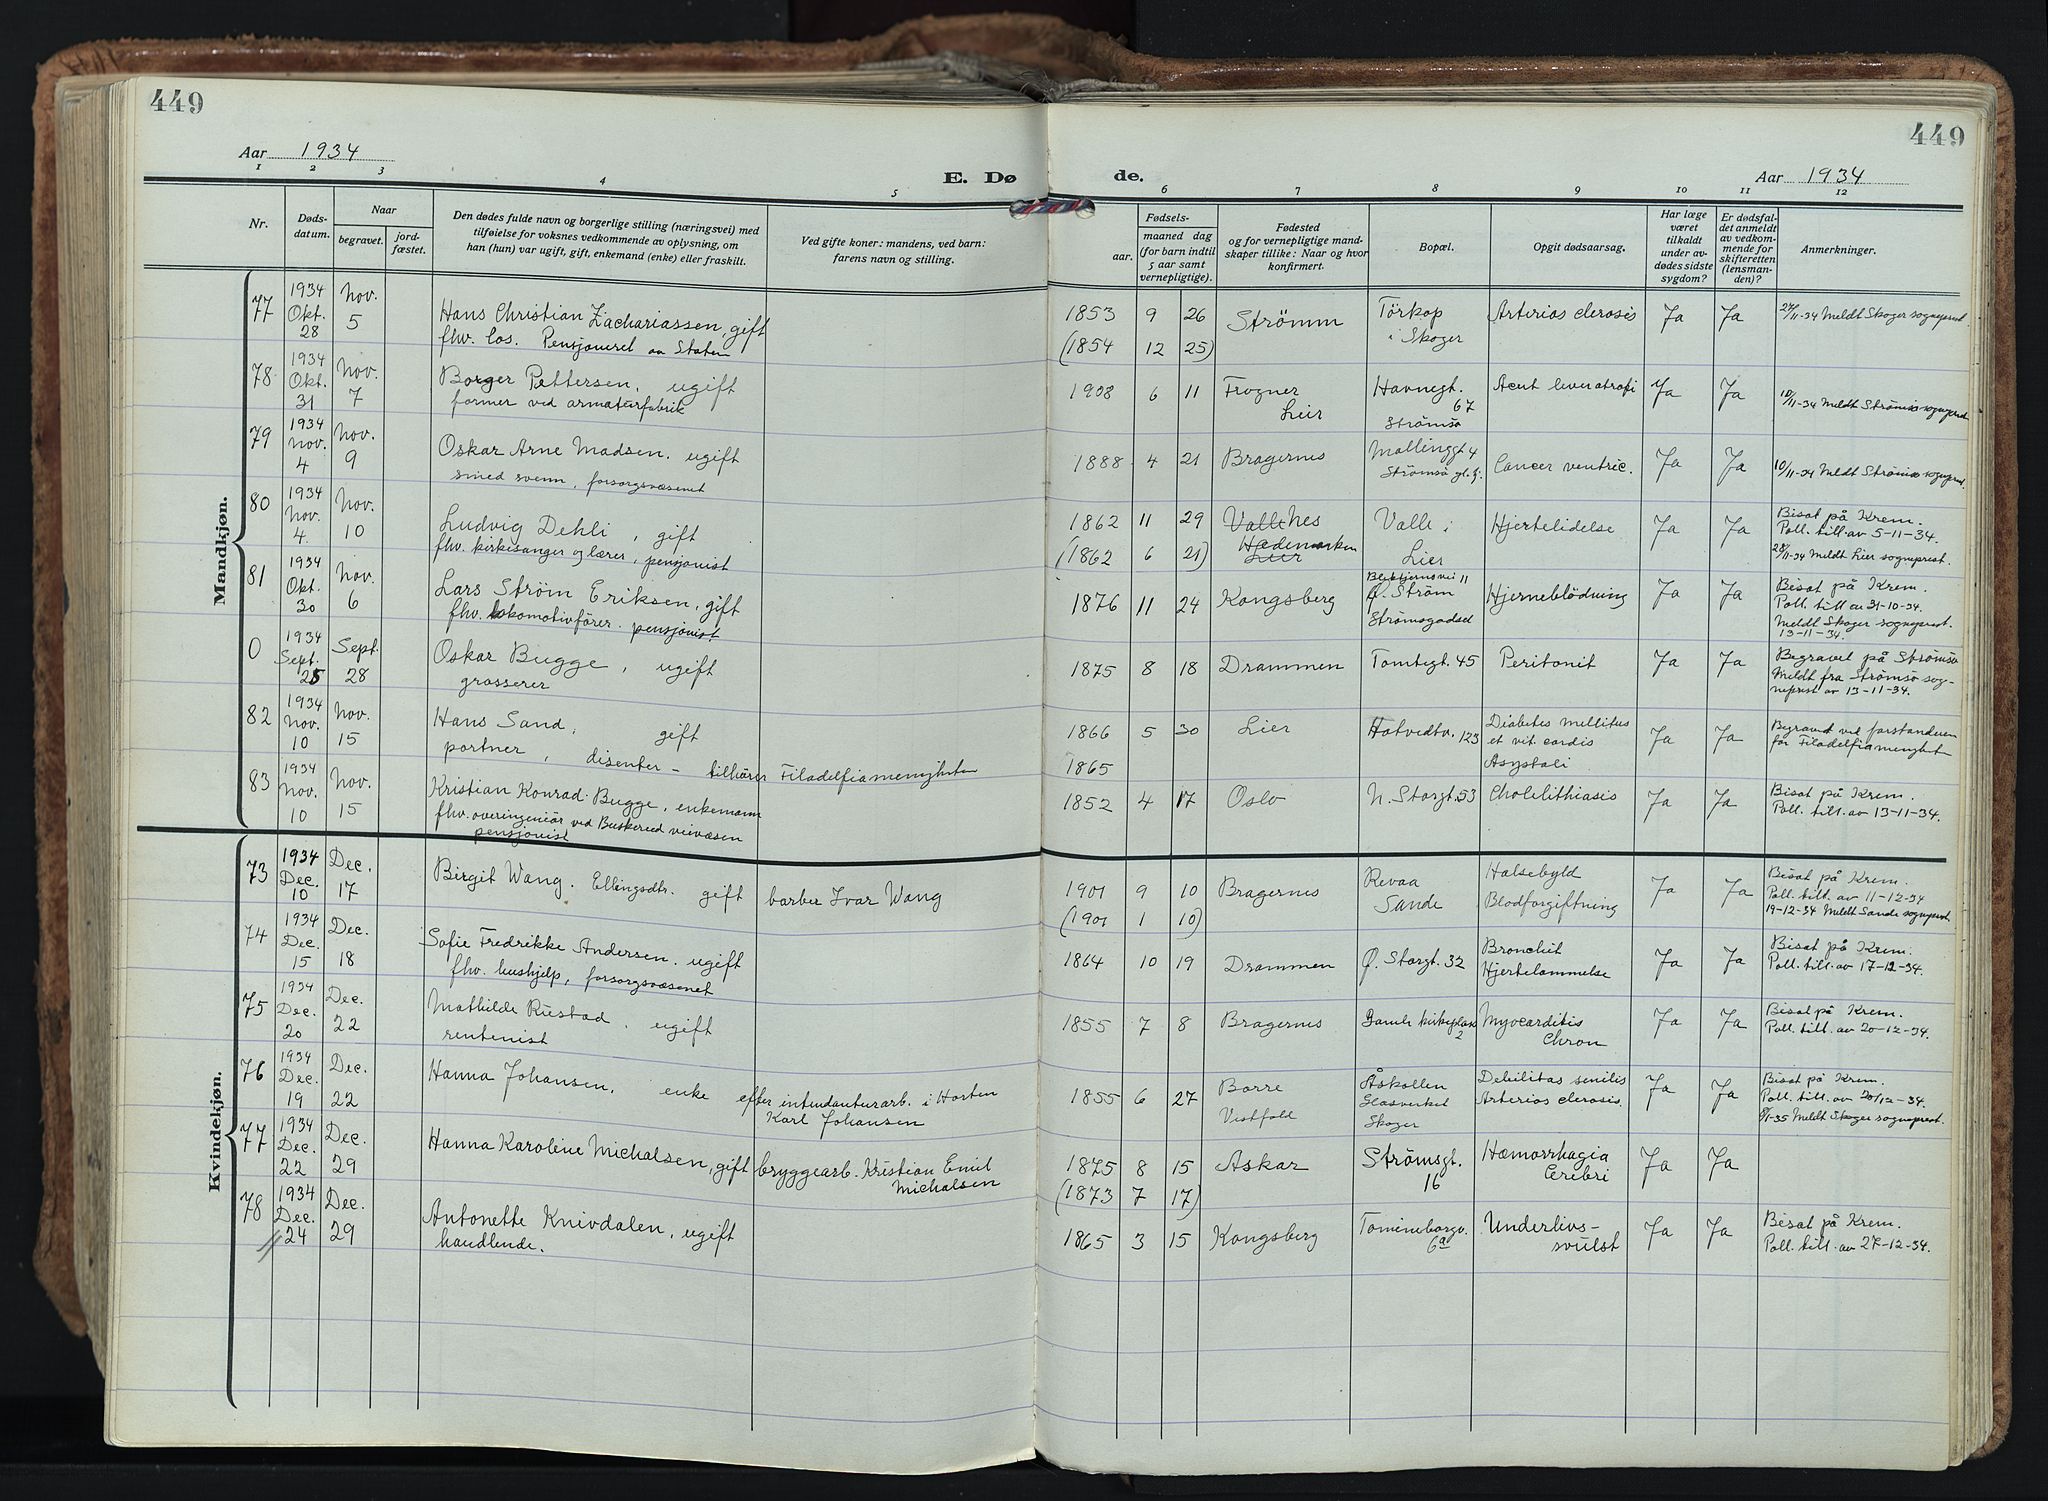 449
449
Aar 1934
E. Dø
de.
Aar 1934
1 2 3 4 5 6 7 8 9 10 11 12
Nr.
Døds-
datum.
Naar
begravet.
jord-
fæstet.
Den dødes fulde navn og borgerlige stilling (næringsvei) med
tilføielse for voksnes vedkommende av oplysning, om
han (hun) var ugift, gift, enkemand (enke) eller fraskilt.
Ved gifte koner: mandens, ved barn:
farens navn og stilling.
Fødsels-
aar.
maaned dag
(for barn indtil
5 aar samt
vernepligtige).
Fødested
og for vernepligtige mand-
skaper tillike: Naar og hvor
konfirmert.
Bopæl.
Opgit dødsaarsag.
Har læge
været
tilkaldt
under av-
dødes sidste
sygdom?
Er dødsfal-
det anmeldt
av vedkom-
mende for
skifteretten
(lensman-
den)?
Anmerkninger.
Mandkjøn.
77
1934
Okt.
28
Nov.
5
Hans Christian Zachariassen, gift
fhv. los. Pensjoneret av Staten
1853 9 26
(1854 12 25)
Strømm
Tørkop
i Skoger
Arterios clerosis
Ja
Ja
27/11-34 Meldt Skoger sogneprest.
78
1934
Okt.
31
Nov.
7
Borger Pettersen, ugift
former ved armaturfabrik
1908 6 11
Frogner
Lier
Havnegt.
67
Strømsø
Acut leveratrofi
Ja
Ja
10/11-34 Meldt Strømsø sogneprest
79
1934
Nov.
4
Nov.
9
Oskar Arne Madsen, ugift
smed svenn, forsorgsvæsenet
1888 4 21
Bragernes
Mallinggt 4
Strømsø gl.
Cancer ventric.
Ja
Ja
10/11-34 Meldt Strømsø sogneprest.
80
1934
Nov.
4.
Nov.
10
Ludvig Dehli, gift
fhv. kirkesanger og lærer, pensjonist
1862 11 29
(1862 6 21)
Nes
Hedemarken
Lier
Valle i
Lier
Hjertelidelse
Ja
Ja
Bisat på Krem.
Poll. till. av 5-11-34.
28/11-34 Meldt Lier sogneprest.
81
1934
Okt.
30
Nov.
6
Lars Strøm Eriksen, gift
fhv. lokomotivfører. pensjonist
1876 11 24
Kongsberg
Blektjernsvei 11
Ø. Strøm
Strømsgodset
Hjerneblödning
Ja
Ja
Bisat på Krem.
Poll. till av 31-10-34.
Meldt Skoger sogneprest.
13-11-34.
0
1934
Sept.
25
Sept.
28
Oskar Bugge, ugift
grosserer
1875 8 18
Drammen
Tomtegt. 45
Peritonit
Ja
Ja
Begravet på Strømsø
Meldt fra Strømsø sog-
neprest av 13-11-34.
82
1934
Nov.
10
Nov.
15
Hans Sand, gift
portner, disenter - tilhører Filadelfiamenigheten
1866 5 30
1865
Lier
Hotvedtv. 123
Diabetes mellitus
et vit. cordis
Asystoli
Ja
Ja
Begravet ved forstanderen
for Filadelfiamenighet
83
1934
Nov.
10
Nov.
15
Kristian Konrad Bugge, enkemann
fhv. overingeniør ved Buskerud veivæsen
pensjonist
1852 4 17
Oslo
N. Storgt. 53
Cholelithiasis
Ja
Ja
Bisat på Krem.
Poll. till. av 13-11-34.
Kvindekjøn.
73
1934
Dec.
10
Dec.
17
Birgit Wang. Ellingsdtr. gift
barber Ivar Wang
1901 9 10
(1901 1 10)
Bragernes
Revaa
Sande
Halsebyld
Blodforgiftning
Ja
Ja
Bisat på Krem.
Poll. till. av 11-12-34
19-12-34 Meldt Sande sogneprest.
74
1934
Dec.
15
Dec.
18
Sofie Fredrikke Andersen. ugift
fhv. hushjelp, forsorgsvæsenet
1864 10 19
Drammen
Ø. Storgt. 32
Bronchit
Hjertelammelse
Ja
Ja
Bisat på Krem.
Poll. till. av 17-12-34.
75
1934
Dec.
20
Dec.
22
Mathilde Rustad, ugift
rentenist
1855 7 8
Bragernes
Gamle kirkeplass
2
Myocarditis
Chron
Ja
Ja
Bisat på Krem.
Poll. till. av 20-12-34.
76
1934
Dec.
19
Dec.
22
Hanna Johansen, enke efter intendanturarb. i Horten
Karl Johansen
1855 6 27
Borre
Vestfold
Åskollen
Glasverket
Skoger
Debilitas senilis
Arterios clerosis.
Ja
Ja
Bisat på Krem.
Poll. till. av 20/12-34.
8/1-35 Meldt Skoger sogneprest.
77
1934
Dec.
22
Dec.
29
Hanna Karoline Michalsen, gift
bryggearb. Kristian Emil
Michalsen
1875 8 15
(1873 7 17)
Askar
Strømsgt.
16
Hæmorrhagia
Cerebri
Ja
Ja
78
1934
Dec.
24
Dec.
29
Antonette Knivdalen, ugift
handlende.
1865 3 15
Kongsberg
Tomineborgv.
6a
Underlivs-
svulst
Ja
Ja
Bisat på Krem.
Poll. till. av 27-12-34.